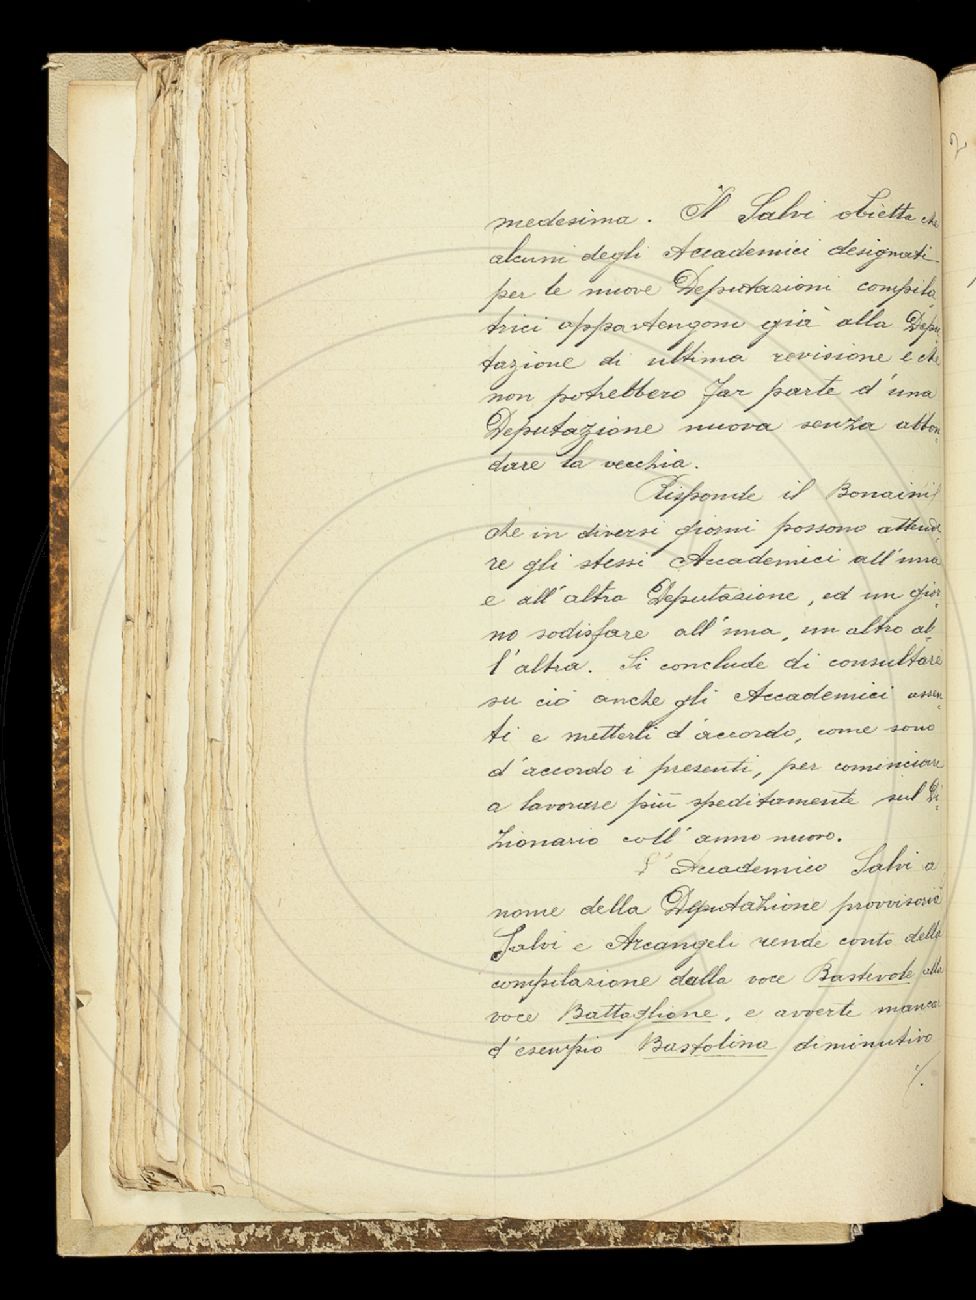 medesima. Il Salvi obietta che
alcuni degli Accademici designati
per le nuove Deputazioni compila-
trici appartengono già alla Depu-
tazione di ultima revisione e che
non potrebbero far parte d'una
Deputazione nuova senza abban-
dare la vecchia.
Risponde il Bonaini
che in diversi giorni possono attende-
re gli stessi Accademici all'una
e all'altra Deputazione, ed un gior-
no sodisfare all'una, un altro al-
l'altra. Si conclude di consultare
su ciò anche gli Accademici assen-
ti e metterli d'accordo, come sono
d'accordo i presenti, per cominciare
a lavorare più speditamente sul Di-
zionario coll'anno nuovo.
L'Accademico Salvi a
nome della Deputazione provvisoria
Salvi e Arcangeli rende conto della
compilazione dalla voce Bastevole alla
voce Battaglione, e avverte mancar
d'esempio Bastolina diminutivo
./.